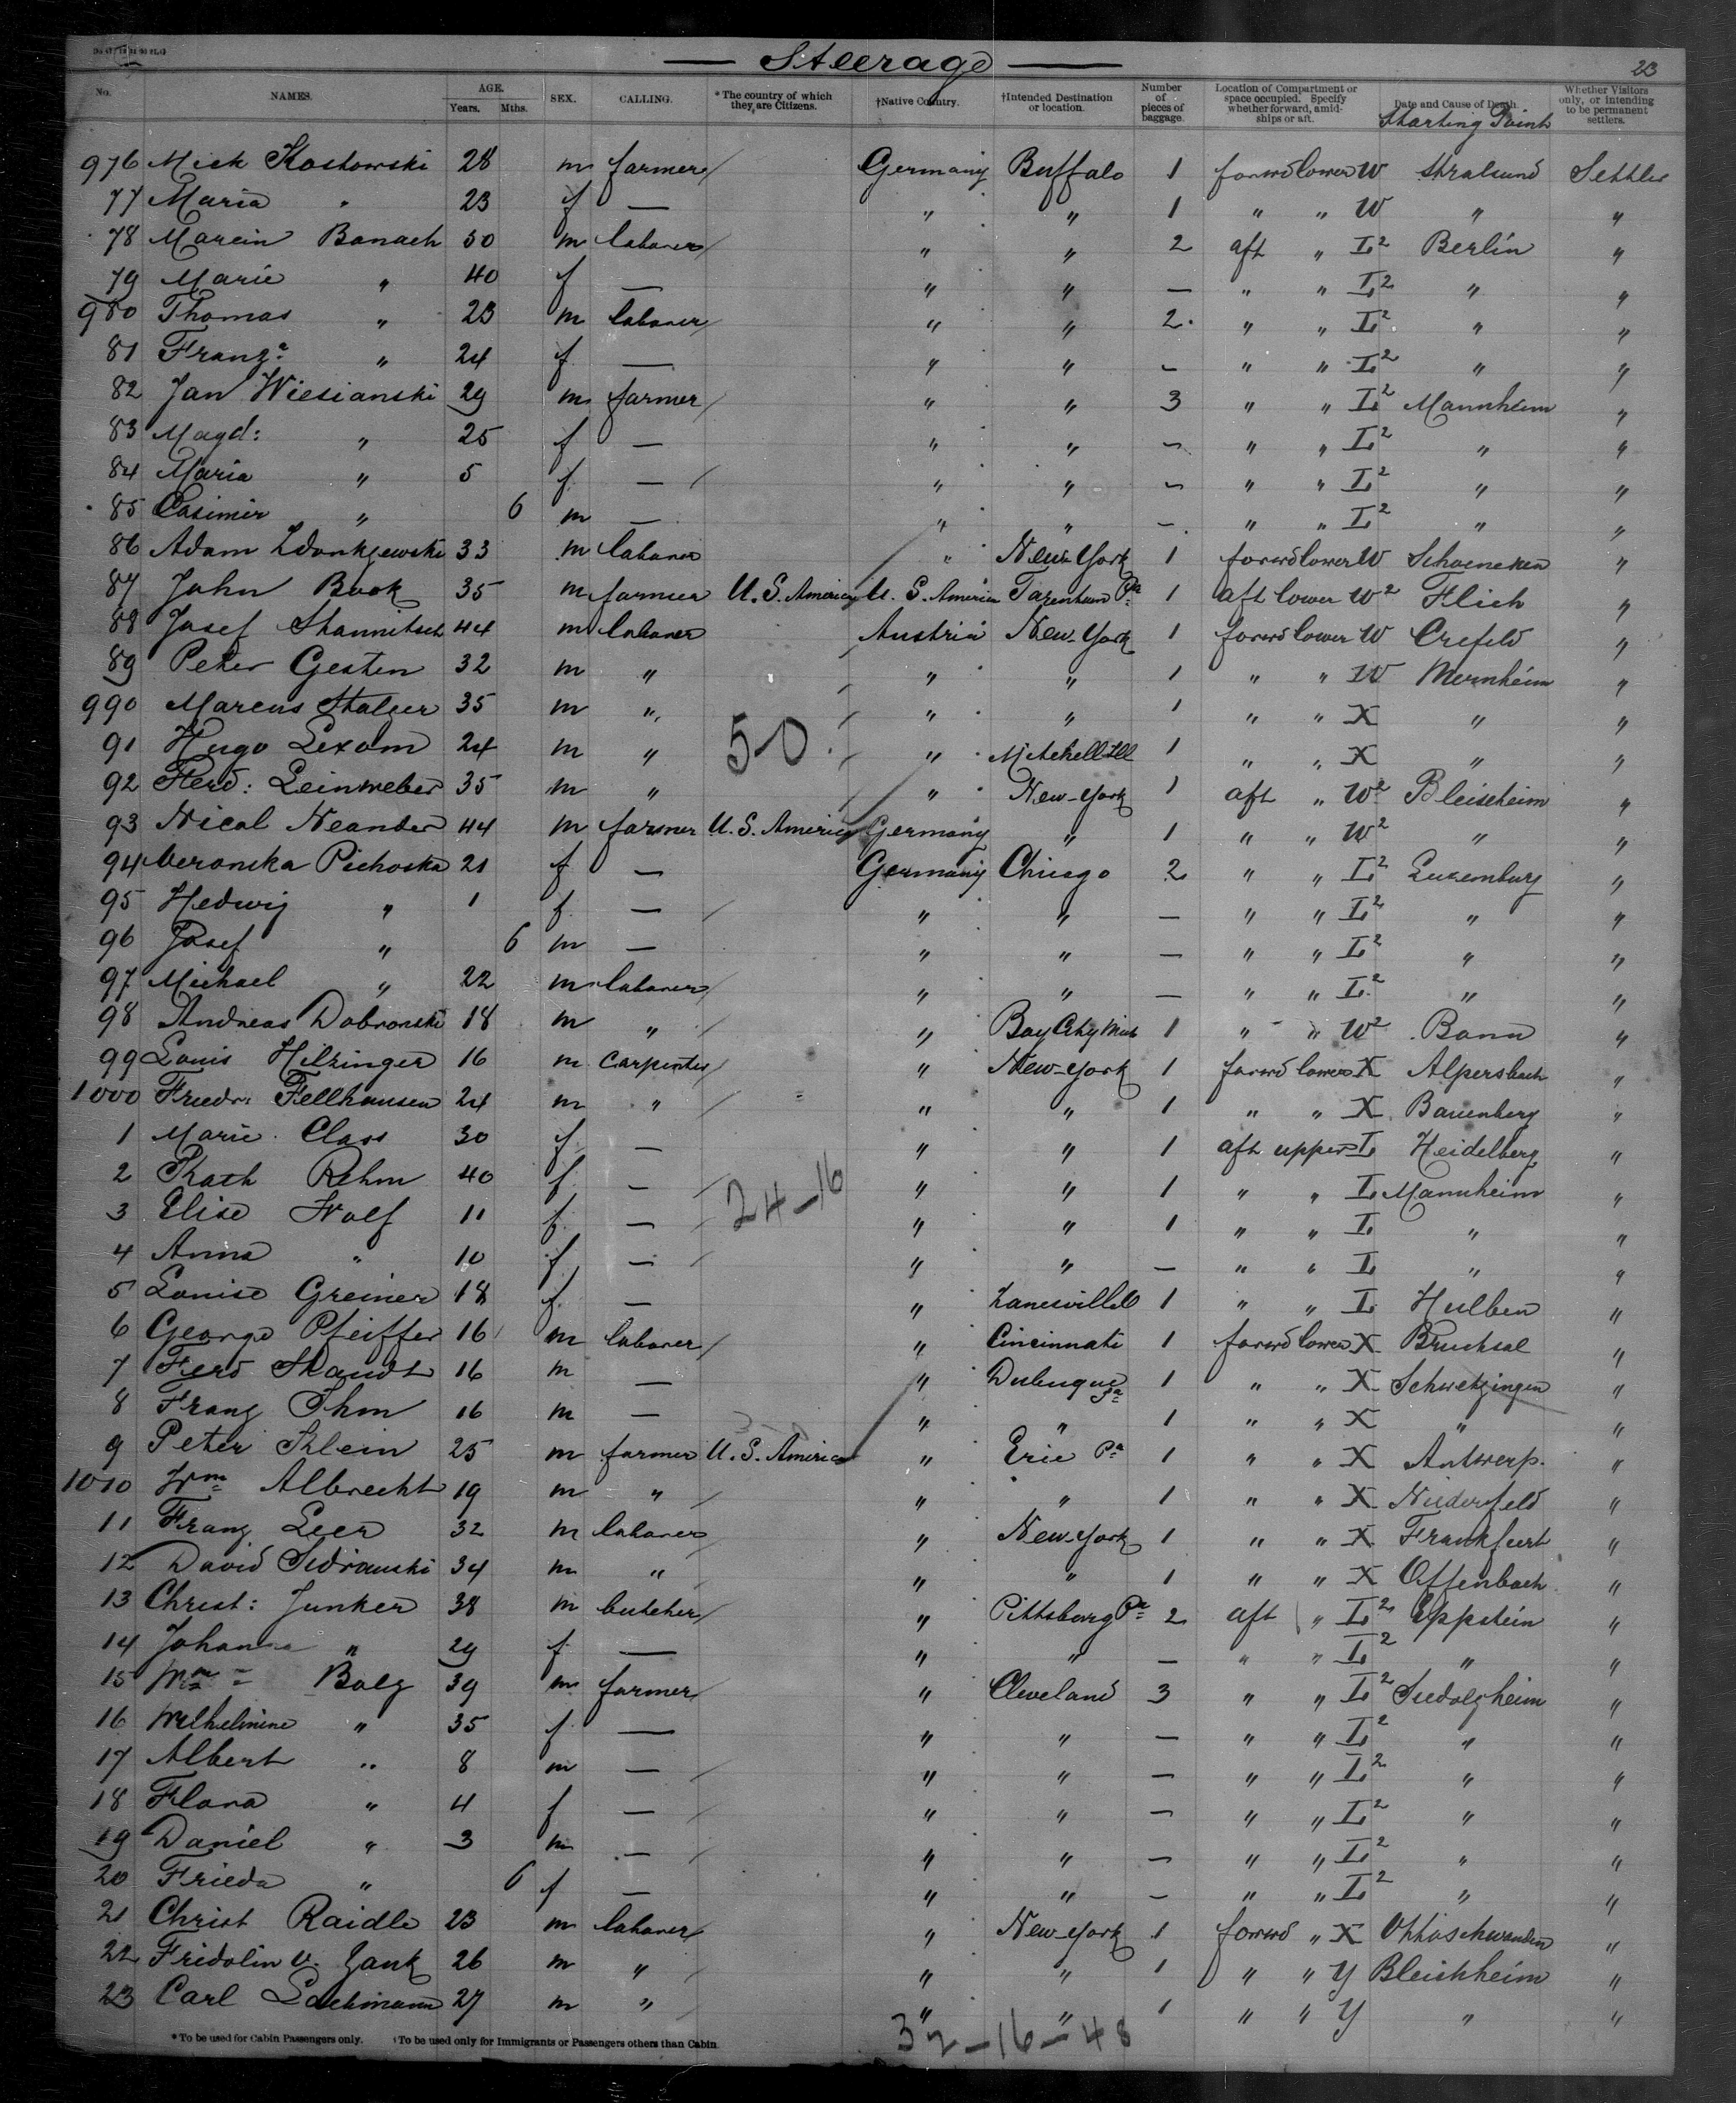 — Steerage —
23
No. NAMES. AGE. Years. Mths. SEX. CALLING. *The country of which they are Citizens. †Native Country. †Intended Destination or location. Number of pieces of baggage. Location of Compartment or space occupied. Specify whether forward, amidships or aft. Date and Cause of Death. Starting Point Whether Visitors only, or intending to be permanent settlers.
976 Mich Kostowski 28 m farmer Germany Buffalo 1 forwd lower W Stralsund Settler
77 Maria " 23 f — " " 1 " " W " "
78 Marcin Banach 50 m laborer " " 2 aft " L2 Berlin "
79 Marie " 40 f — " " — " " L2 " "
980 Thomas " 23 m laborer " " 2 " " L2 " "
81 Franza " 24 f — " " — " " L2 " "
82 Jan Wiesianski 29 m farmer " " 3 " " L2 Mannheim "
83 Magd: " 25 f — " " — " " L2 " "
84 Maria " 5 f — " " — " " L2 " "
85 Casimir " 6 m — " " — " " L2 " "
86 Adam 33 m laborer " New-York 1 forwd lower W Schoeneken "
87 John Book 35 m farmer U.S. America U.S. America Tarentum Pa 1 aft lower W2 Flich "
88 Josef 44 m laborer Austria New-York 1 forwd lower W Crefeld "
89 Peter Gesten 32 m " " " 1 " " W "
990 Marcus Stalzer 35 m " " " 1 " " X " "
91 Hugo Lexom 24 m " 50 " Mitchell Ill 1 " " X " "
92 Ferd: Leinweber 35 m " " New-York 1 aft " W2 Bleischeim "
93 Nicol Neander 44 m farmer U.S. America Germany " 1 " " W2 " "
94 Veronika Pichoska 21 f — Germany Chicago 2 " " L2 Luxemburg "
95 Hedwig " 1 f — " " — " " L2 " "
96 Josef " 6 m — " " — " " L2 " "
97 Michael " 22 m laborer " " — " " L2 " "
98 Andreas Dobronski 18 m " " Bay City Mich 1 " " W2 Bonn "
99 Louis Hilzinger 16 m Carpenter " New-York 1 forwd lower X Alpersbach "
1000 Friedr: Fellhausen 24 m " " " 1 " " X Bauenberg "
1 Marie Class 30 f — " " 1 aft upper L Heidelberg "
2 Kath Rehm 40 f — 24-16 " " 1 " " L Mannheim "
3 Elise Wolf 11 f — " " 1 " " L " "
4 Anna " 10 f — " " — " " L " "
5 Louise Greiner 18 f — " Zanesville O 1 " " L Hulben "
6 George Pfeiffer 16 m laborer " Cincinnati 1 forwd lower X Bruchsal "
7 Ferd Staudt 16 m — " Dubuque Ja 1 " " X Schwetzingen "
8 Franz Ihm 16 m — " " 1 " " X " "
9 Peter Klein 25 m farmer U.S. America " Erie Pa 1 " " X Antwerp. "
1010 Wm Albrecht 19 m " " " 1 " " X Niederfeld "
11 Franz Leer 32 m laborer " New-York 1 " " X Frankfurt "
12 David 34 m " " " 1 " " X Offenbach "
13 Christ: Junker 38 m butcher " Pittsburg Pa 2 aft " L2 Eppstein "
14 Johanna " 29 f — " " — " " L2 " "
15 Wm Bolz 39 m farmer " Cleveland 3 " " L2 "
16 Wilhelmine " 35 f — " " — " " L2 " "
17 Albert " 8 m — " " — " " L2 " "
18 Flora " 4 f — " " — " " L2 " "
19 Daniel " 3 m — " " — " " L2 " "
20 Frieda " 6 f — " " — " " L2 " "
21 Christ Raidle 23 m laborer " New-York 1 forwd " X Ottoschwanden "
22 Fridolin v. Zank 26 m " " " 1 " " Y Bleichheim "
23 Carl Lachmann 27 m " " " 1 " " Y " "
32-16-48
*To be used for Cabin Passengers only. †To be used only for Immigrants or Passengers others than Cabin